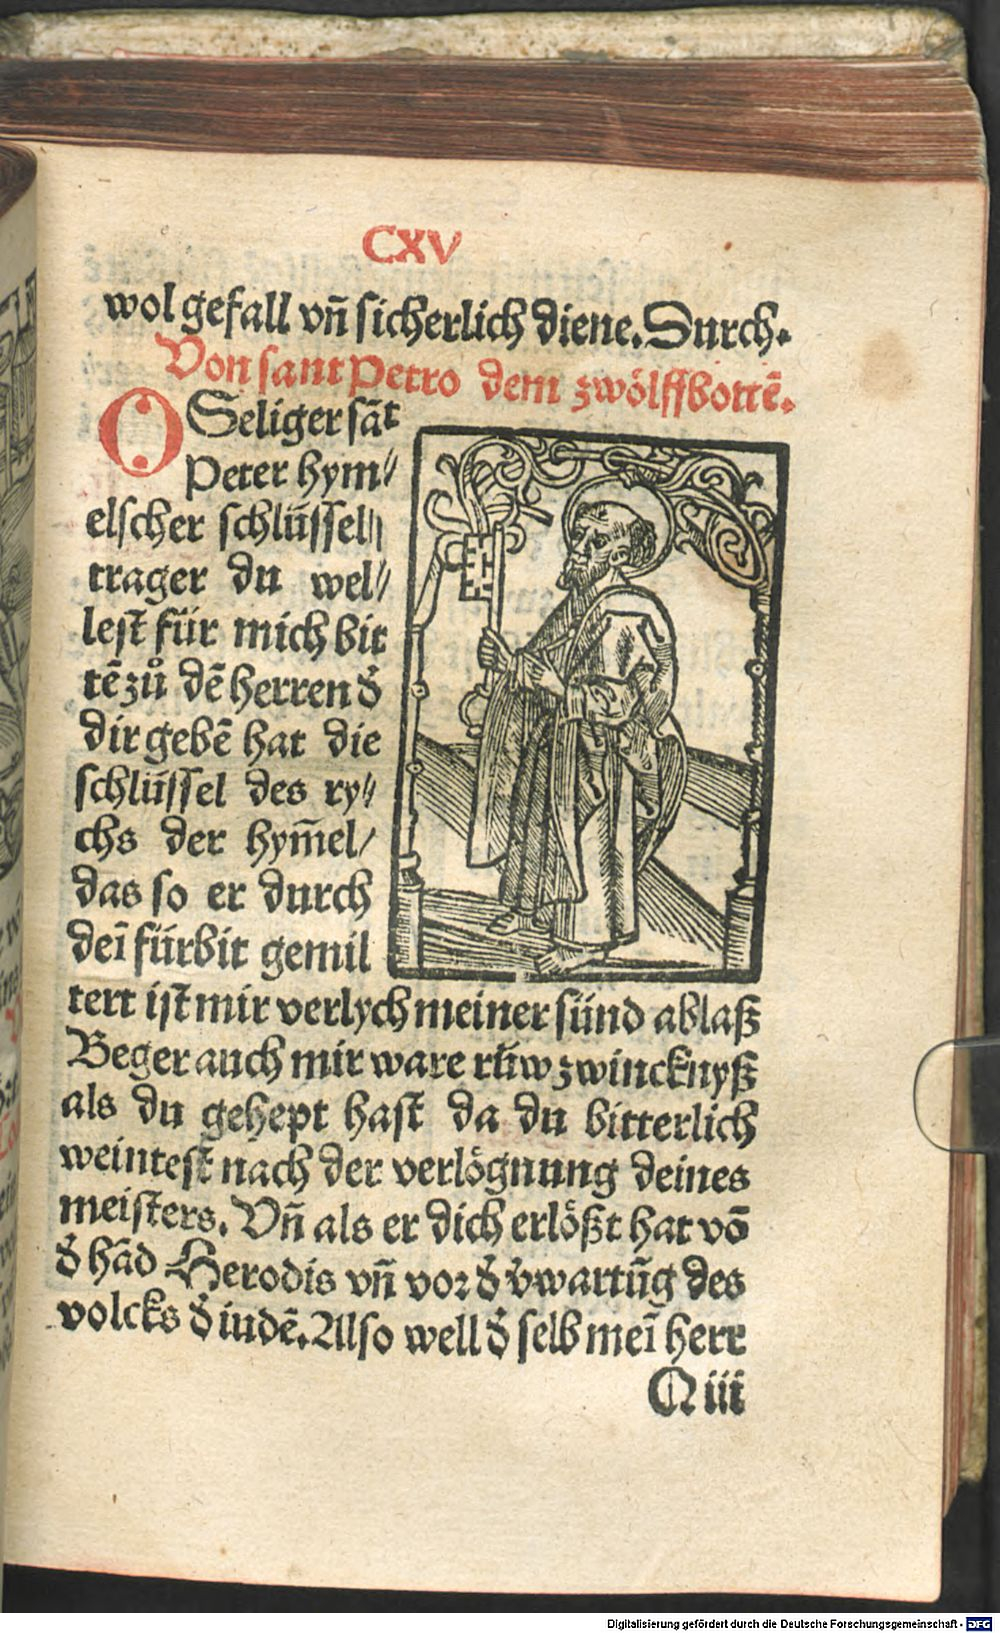 CXV
wol gefall vñ sicherlich diene. Durch.
Von sant Petro dem zwölffbottē.
O Seliger sāt
Peter hym⸗
elscher schlüssel⸗
trager du wel⸗
lest für mich bit
tē zů dē herren d̕
dir gebē hat die
schlüssel des ry⸗
chs der hym̄el/
das so er durch
deī fürbit gemil
tert ist mir verlych meiner sünd ablaß
Beger auch mir ware rüw zwincknyß
als du gehept hast da du bitterlich
weintest nach der verlögnung deines
meisters. Vñ als er dich erlößt hat vō
d̕ hād Herodis vñ vor d̕ v̕wartūg des
volcks d̕ iudē. Also well d̕ selb meī herr
Q iii
Digitalisierung gefördert durch die Deutsche Forschungsgemeinschaft - DFG